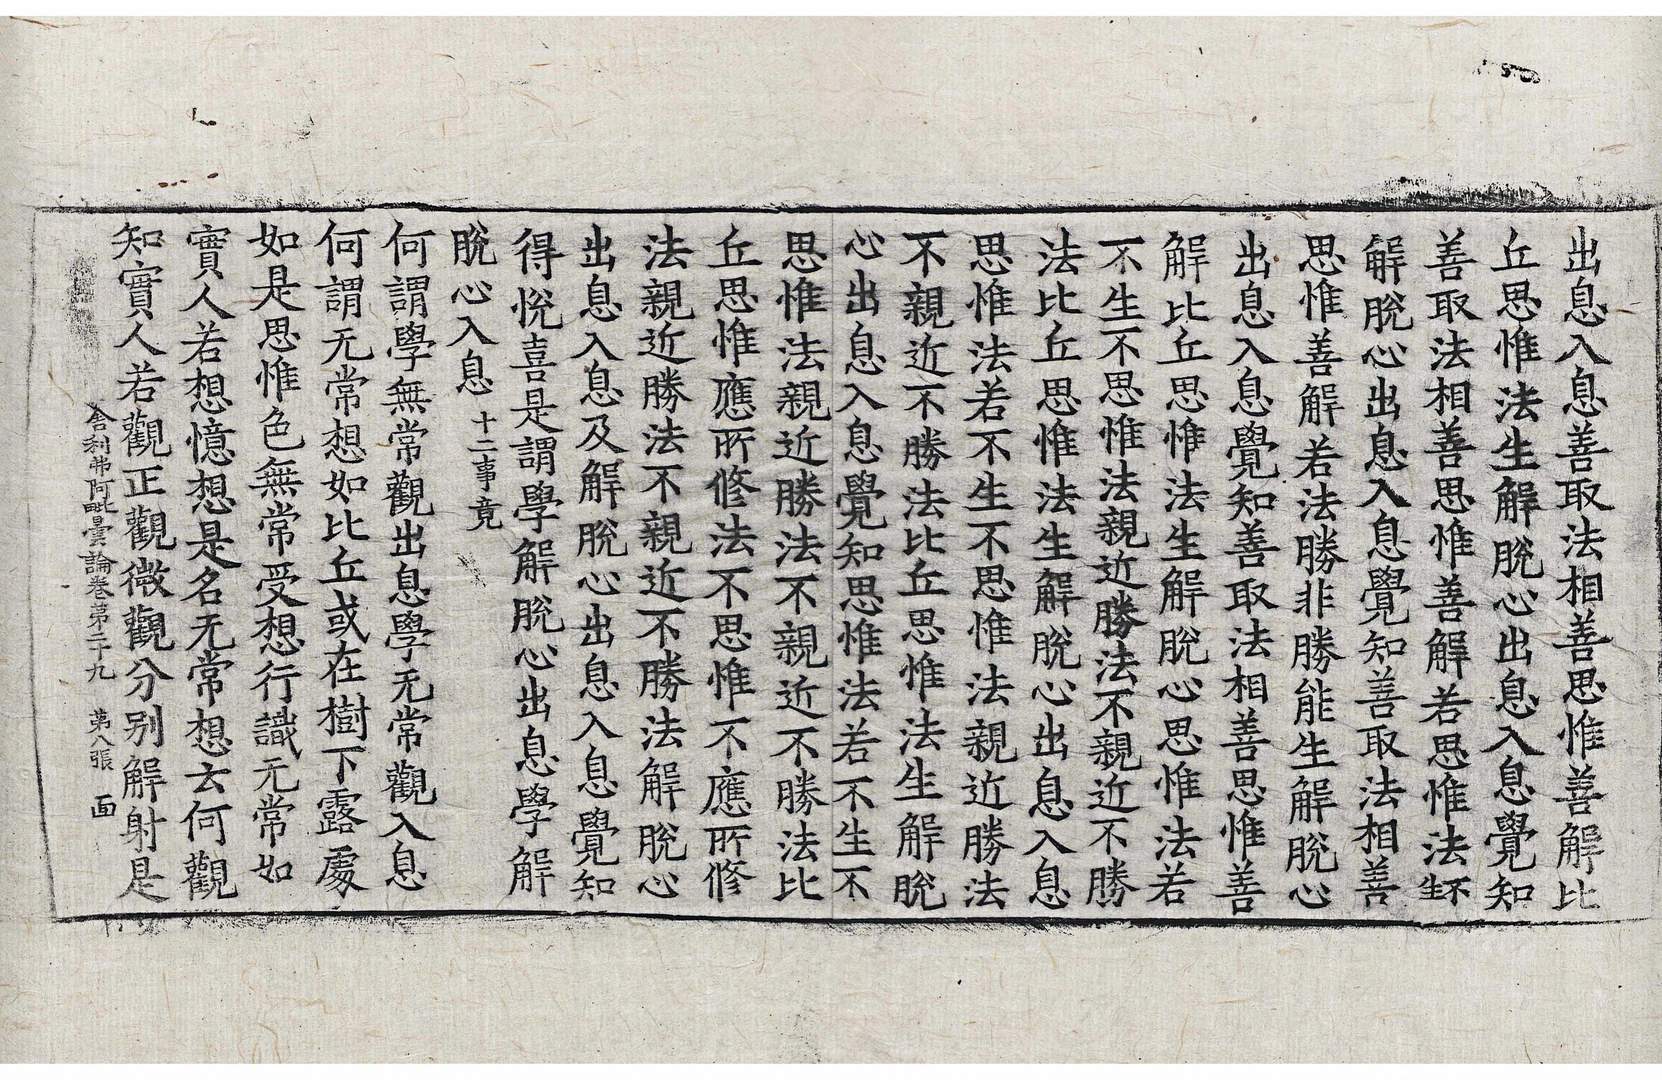 出息入息善取法相善思惟善解比
丘思惟法生解脫心出息入息覺知
善取法相善思惟善解若思惟法不生
解脫心出息入息覺知善取法相善
思惟善解若法勝非勝能生解脫心
出息入息覺知善取法相善思惟善
解比丘思惟法生解脫心思惟法若
不生不思惟法親近勝法不親近不勝
法比丘思惟法生解脫心出息入息
思惟法若不生不思惟法親近勝法
不親近不勝法比丘思惟法生解脫
心出息入息覺知思惟法若不生不
思惟法親近勝法不親近不勝法比
丘思惟應所修法不思惟不應所修
法親近勝法不親近不勝法解脫心
出息入息及解脫心出息入息覺知
得悅喜是謂學解脫心出息學解
脫心入息 十二事竟
何謂學無常觀出息學无常觀入息
何謂无常想如比丘或在樹下露處
如是思惟色無常受想行識无常如
實人若想憶想是名无常想云何觀
知實人若觀正觀微觀分別解射是
舍利弗阿毗曇論卷第二十九 第八張 面